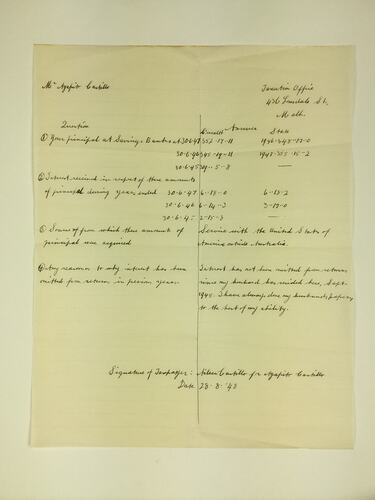 Mr Agapito Castillo
Taxation Office
436 Lonsdale St.,
Melb.
Question
Answers
State
① Your principal at Savings Bank as at 30-6-47 352-17-11
30-6-46 345-19-11
30-6-45
② Interest received in respect of these amounts
of principal during years ended 30-6-47 6-18-0 6-13-2
30-6-46 6-14-3 3-17-0
30-6-45 2-15-3 —
③ Source from which these amounts of principal was acquired
Service with the United States of
America outside Australia.
④ Any reasons as to why interest has been
omitted from returns in previous years.
Interest has not been omitted from returns
since my husband has resided here, Sept.
1945. I have always done my husband's papers
to the best of my ability.
Signature of Taxpayer: Aileen Castillo for Agapito Castillo
Date 28-8-'48